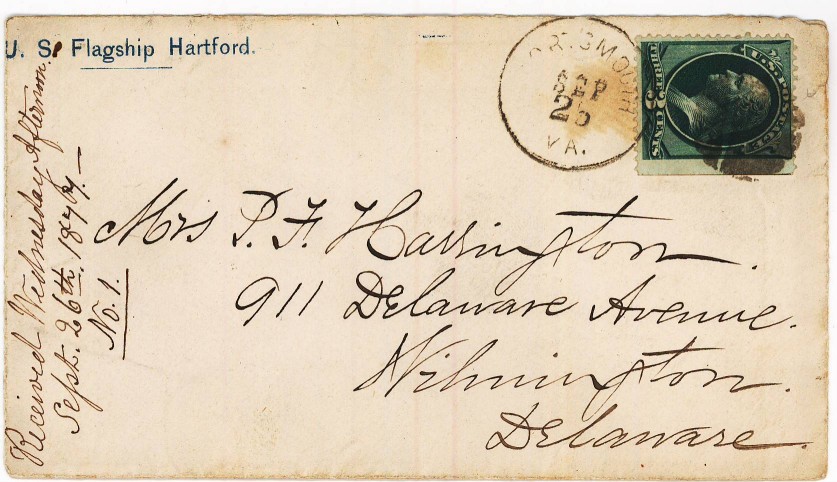 U. S. Flagship Hartford.
PORTSMOUTH
SEP
25
VA.
U.S. POSTAGE
THREE 3 CENTS
Mrs P. F. Harrington.
911 Delaware Avenue.
Wilmington.
Delaware.
Received Wednesday Afternoon.
Sept. 26th. 1877.—
No. 1.